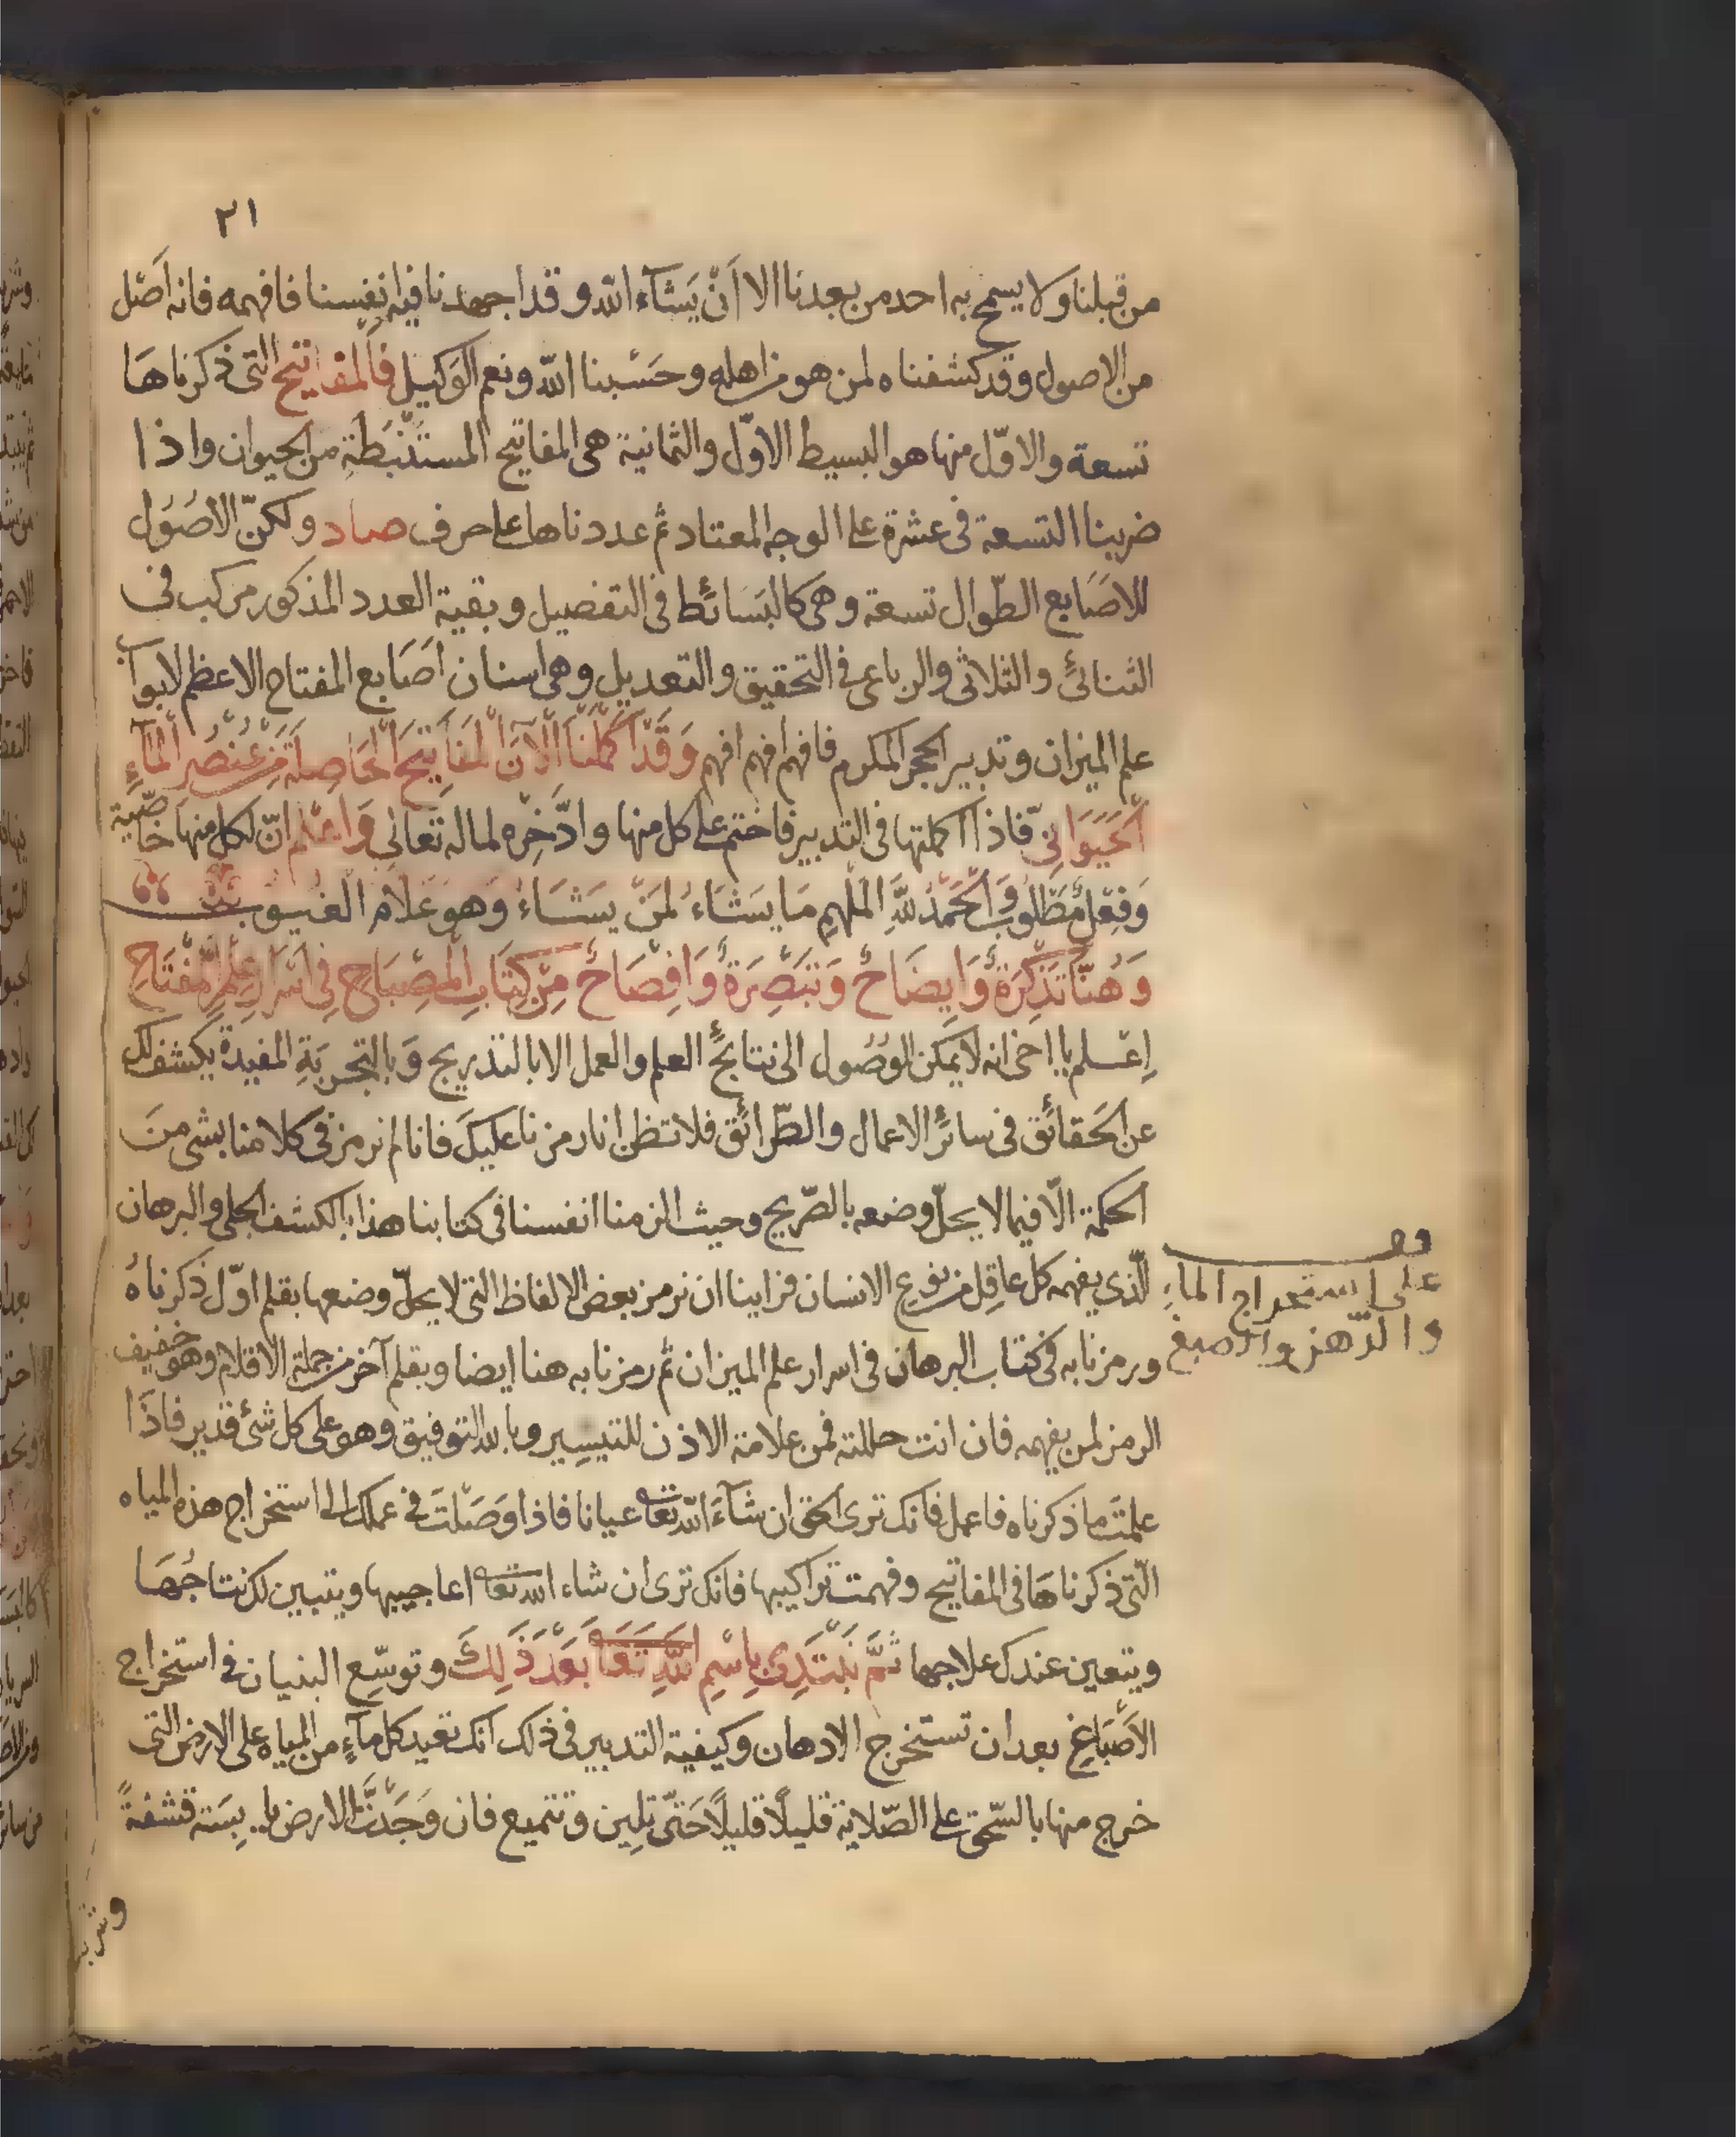 ٣١
من قبلنا ولا يسمح به احد من بعدنا الا اَنْ يَشَآءَ الله وقد اجهدنا فيه انفسنا فافهمه فانه اَصْل
من الاصول وقد كشفناه لمن هو من اهله وحَسْبنا الله ونعم الوَكيل فالمفاتيح التى ذكرناهَا
تسعة والاوّل منها هو البسيط الاوّل والثمانية هى المفاتيح المستَنْبَطَةِ من الحيوان واذا
ضربنا التسعة فى عشرة على الوجه المعتاد ثم عددناها على حرف صاد ولكنّ الاصُوُل
للاصَابع الطّوال تسعة وهى كالبَسَائط فى التفصيل وبقية العدد المذكور مركب فى
الثنائى والثلاثى والرباعى فى التحقيق والتعديل وهى اسنان اصَابع المفتاح الاعظم لابواب
علم الميزان وتدبير الحجر المكرم فافهم افهم افهم وَقَدْ اَكْمَلْنَا الْآنَ الْمَفَاتِيحَ الْحَاصِلَةَ مِنْ عُنْصُرِ الْمَآءِ
الْحَيَوَانِىّ فاذا اكملتها فى التدبير فاختم على كل منها وادّخِره لما له تَعالى وَاعْلم انّ لكل منها خاصِّيَّة
وَفِعْلٌ مَطْلُوبٌ وَالْحَمْدُ لِلَّهِ الْمُلْهِمِ مَا يَشَاءُ لمَنْ يَشَاءُ وَهوَ عَلّام الغيوب
وَهُنَا تَذْكِرَةٌ وَاِيضَاحٌ وَتَبْصِرَةٌ وَاِفْصَاحٌ مِنْ كِتَابِ الْمِصْبَاحِ فِى اَسْرَارِ عِلْمِ الْمِفْتَاحِ
اِعْلم يا اخى انه لَا يمكن الوُصُول الى نتايج العلم والعمل الا بالتدريج وَبالتجربَةِ المفيدة يكشف لك
عن الحَقائق فى سائر الاعمال والطّرائق فلا تظن انا رمزنا عليكَ فانا لم نرمز فى كلامنا بشى منَ
الحكمة الّا فيما لا يحلّ وضعه بالصّريح وحيث الزمنا انفسنا فى كتابنا هذا بالكشف الجلى والبرهان
الّذى يفهمه كل عاقِل من نوع الانسان فراينا ان نرمز بعض الالفاظ التى لا يحلّ وضعها بقلم اوّل ذكرناهُ
ورمزنا به فى كتاب البرهان فى اسرار علم الميزان ثم رمزنا به هنا ايضا وبقلم آخر من جملة الاقلام وهو خفيف
الرمز لمن يفهمه فان انت حللته فمن علامة الاذن للتيسِير وبالله التوفيق وهو على كل شئ قدير فاذَا
علمتَ ما ذكرناه فاعمل فانك ترى الحق ان شآءَ الله تعا عيانا فاذا وَصَلْتَ فى عملك الى استخراج هذه المياه
الّتى ذكرناهَا فى المفاتيح وفهمت تراكيبها فانك ترى ان شاء الله تعا اعاجيبها ويتبين لك نتاجُهَا
ويتعين عندك علاجها ثُمَّ نَبْتَدِئُ بِاسْمِ اللَّهِ تَعَا بَعْدَ ذَلِكَ وتوسّع البنيان فى استخراج
الاَصْبَاغِ بعد ان تستخرج الادهان وكيفية التدبير فى ذلك انك تعيد كل مآءٍ من المياه على الارض التى
خرج منها بالسّحق على الصّلاية قليلًا قليلًا حَتّى تلِين وتتميع فان وَجَدْتَ الارض يابِسَة قشفةً
وشربها
وقف
على استخراج الماءِ
والدهن والصبغ